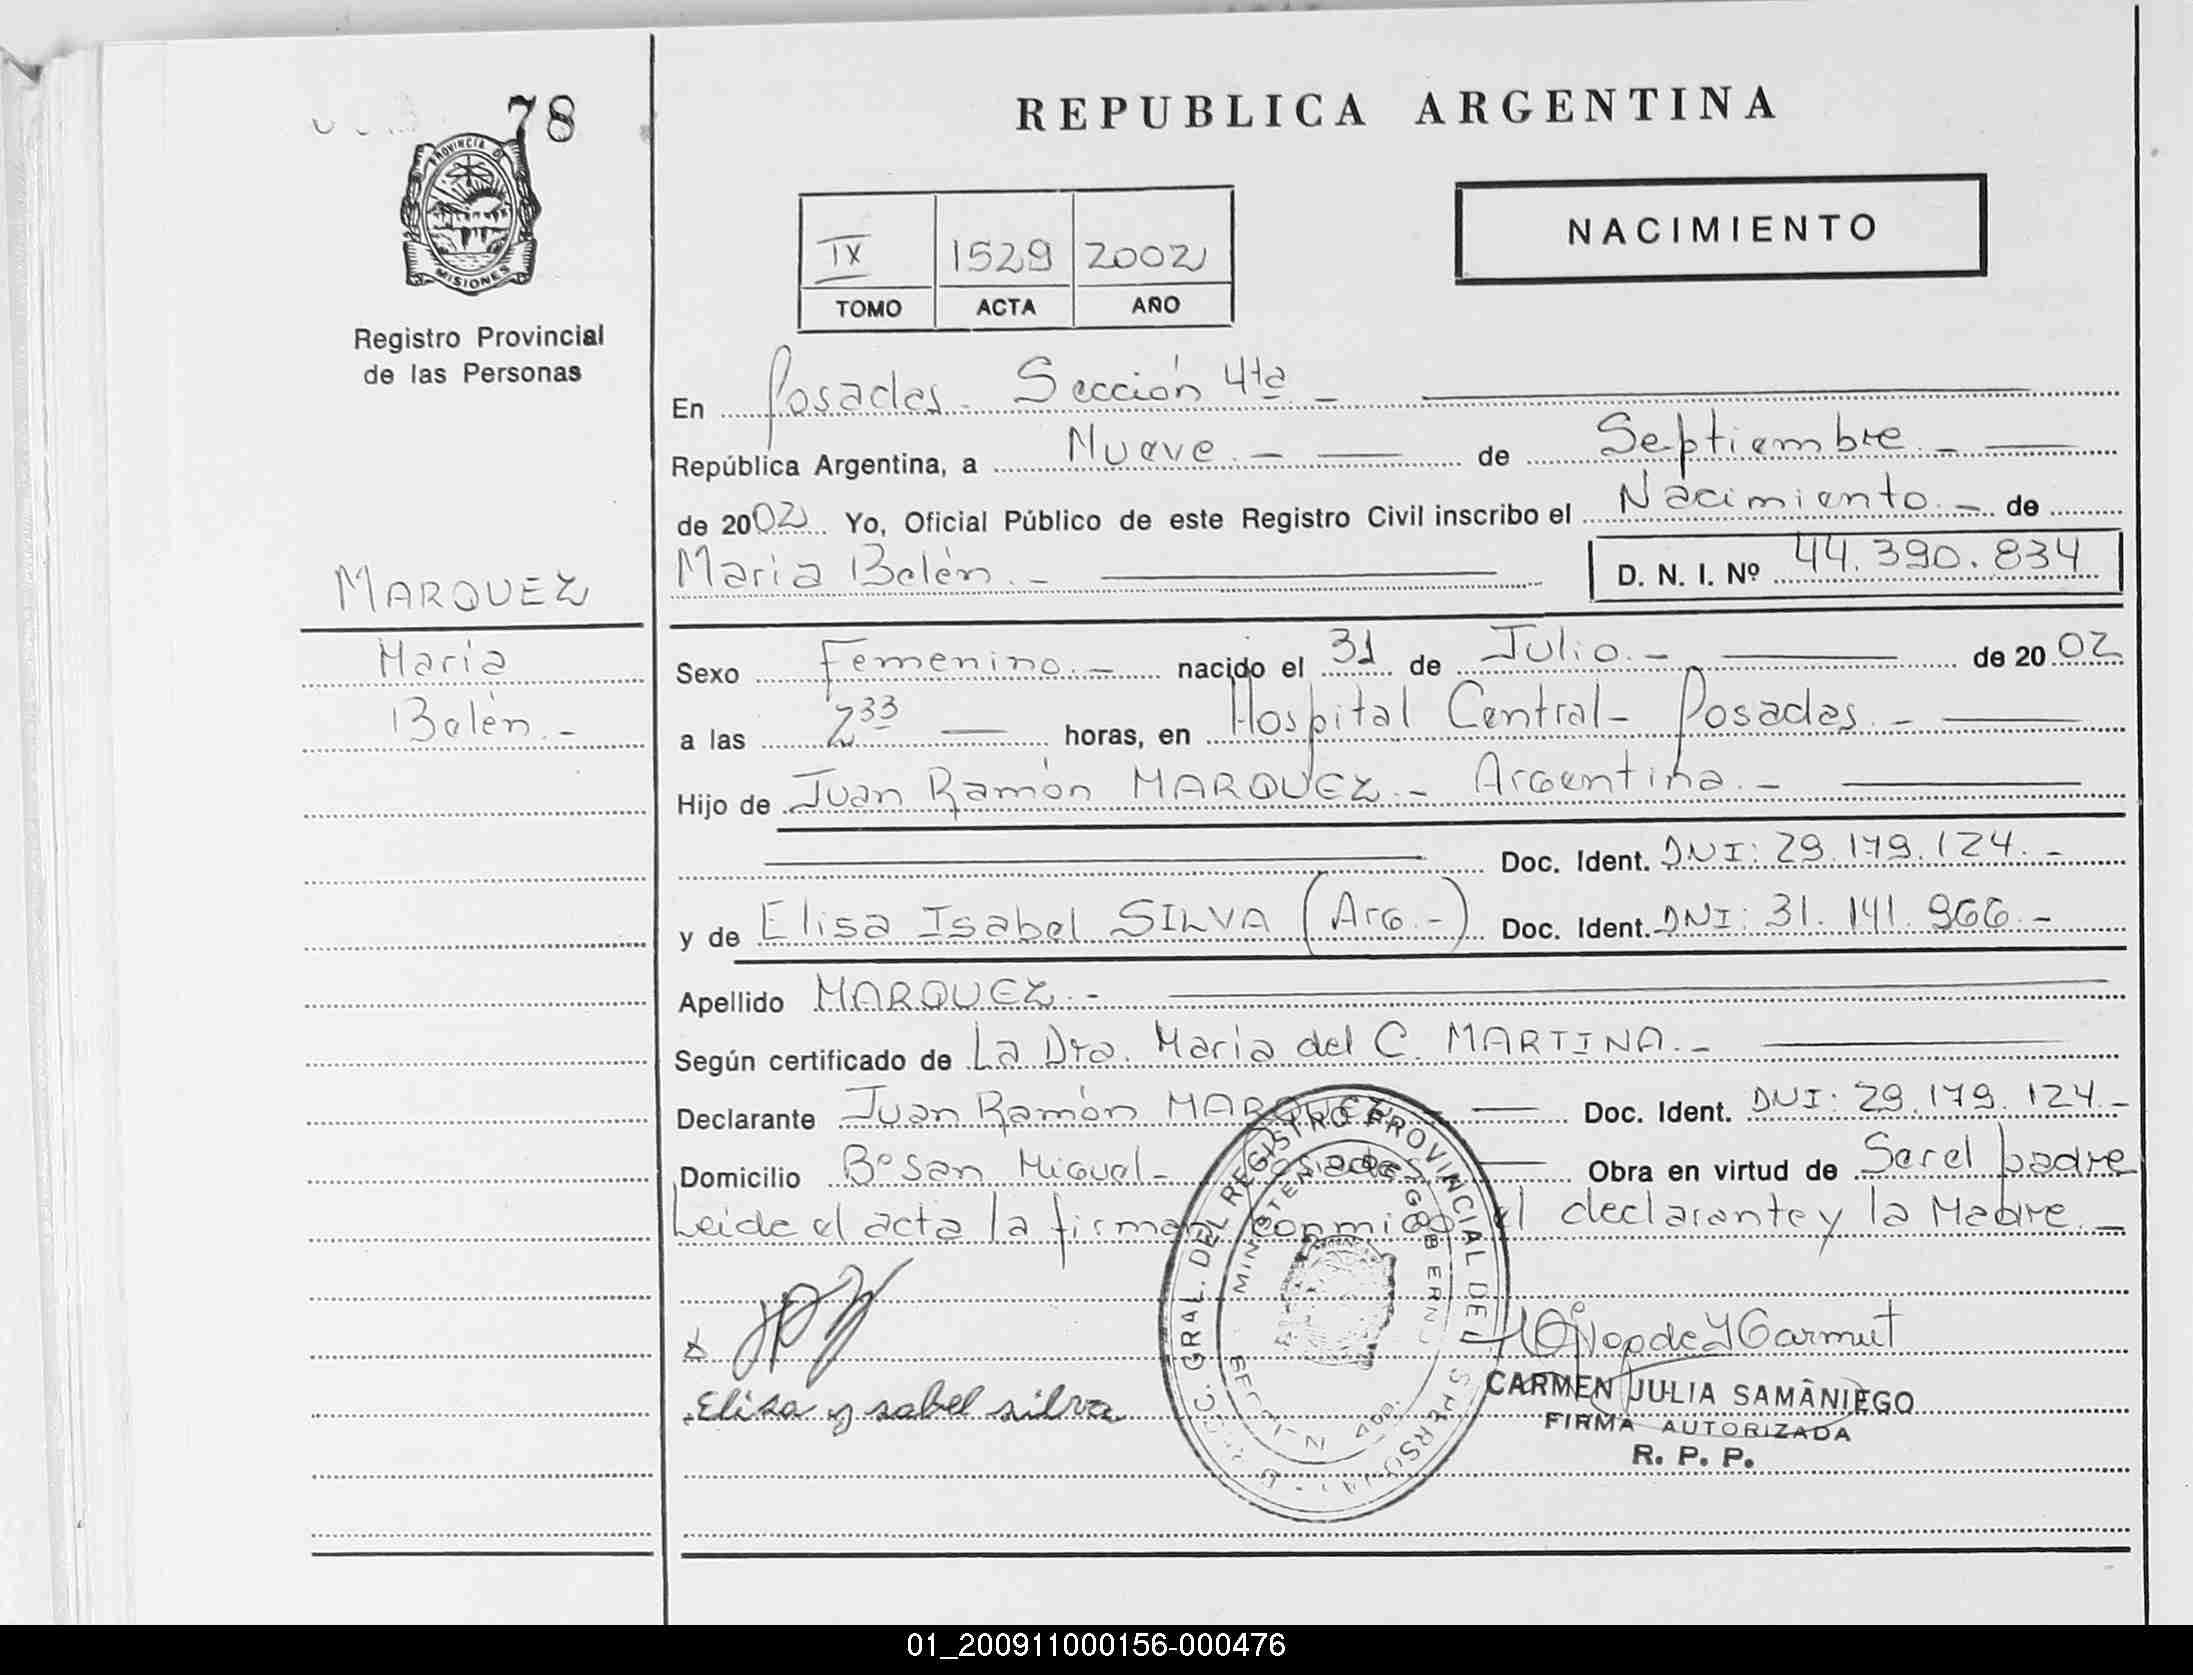 78
PROVINCIA D
MISIONES
Registro Provincial
de las Personas
MARQUEZ
María
Belén.-
REPUBLICA ARGENTINA
NACIMIENTO
IX 1529 2002
TOMO ACTA AÑO
En Posadas. Sección 4ta.-
República Argentina, a Nueve.- de Septiembre.-
de 2002 Yo, Oficial Público de este Registro Civil inscribo el Nacimiento.- de
María Belén.- D. N. I. Nº 44.390.834
Sexo Femenino.- nacido el 31 de Julio.- de 2002
a las 2 33 horas, en Hospital Central- Posadas.-
Hijo de Juan Ramón MARQUEZ.- Argentina.-
Doc. Ident. DNI: 29.179.124.-
y de Elisa Isabel SILVA (Arg.-) Doc. Ident. DNI: 31.141.966.-
Apellido MARQUEZ.-
Según certificado de La Dra. María del C. MARTINA.-
Declarante Juan Ramón MARQUEZ.- Doc. Ident. DNI: 29.179.124.-
Domicilio Bº San Miguel- Posadas Obra en virtud de Ser el padre
Leida el acta la firman conmigo el declarante y la Madre.-
Elisa ysabel silva
GRAL. DEL REGISTRO PROVINCIAL DE
MINISTERIO DE GOBIERNO
CARMEN JULIA SAMANIEGO
FIRMA AUTORIZADA
R. P. P.
01_200911000156-000476